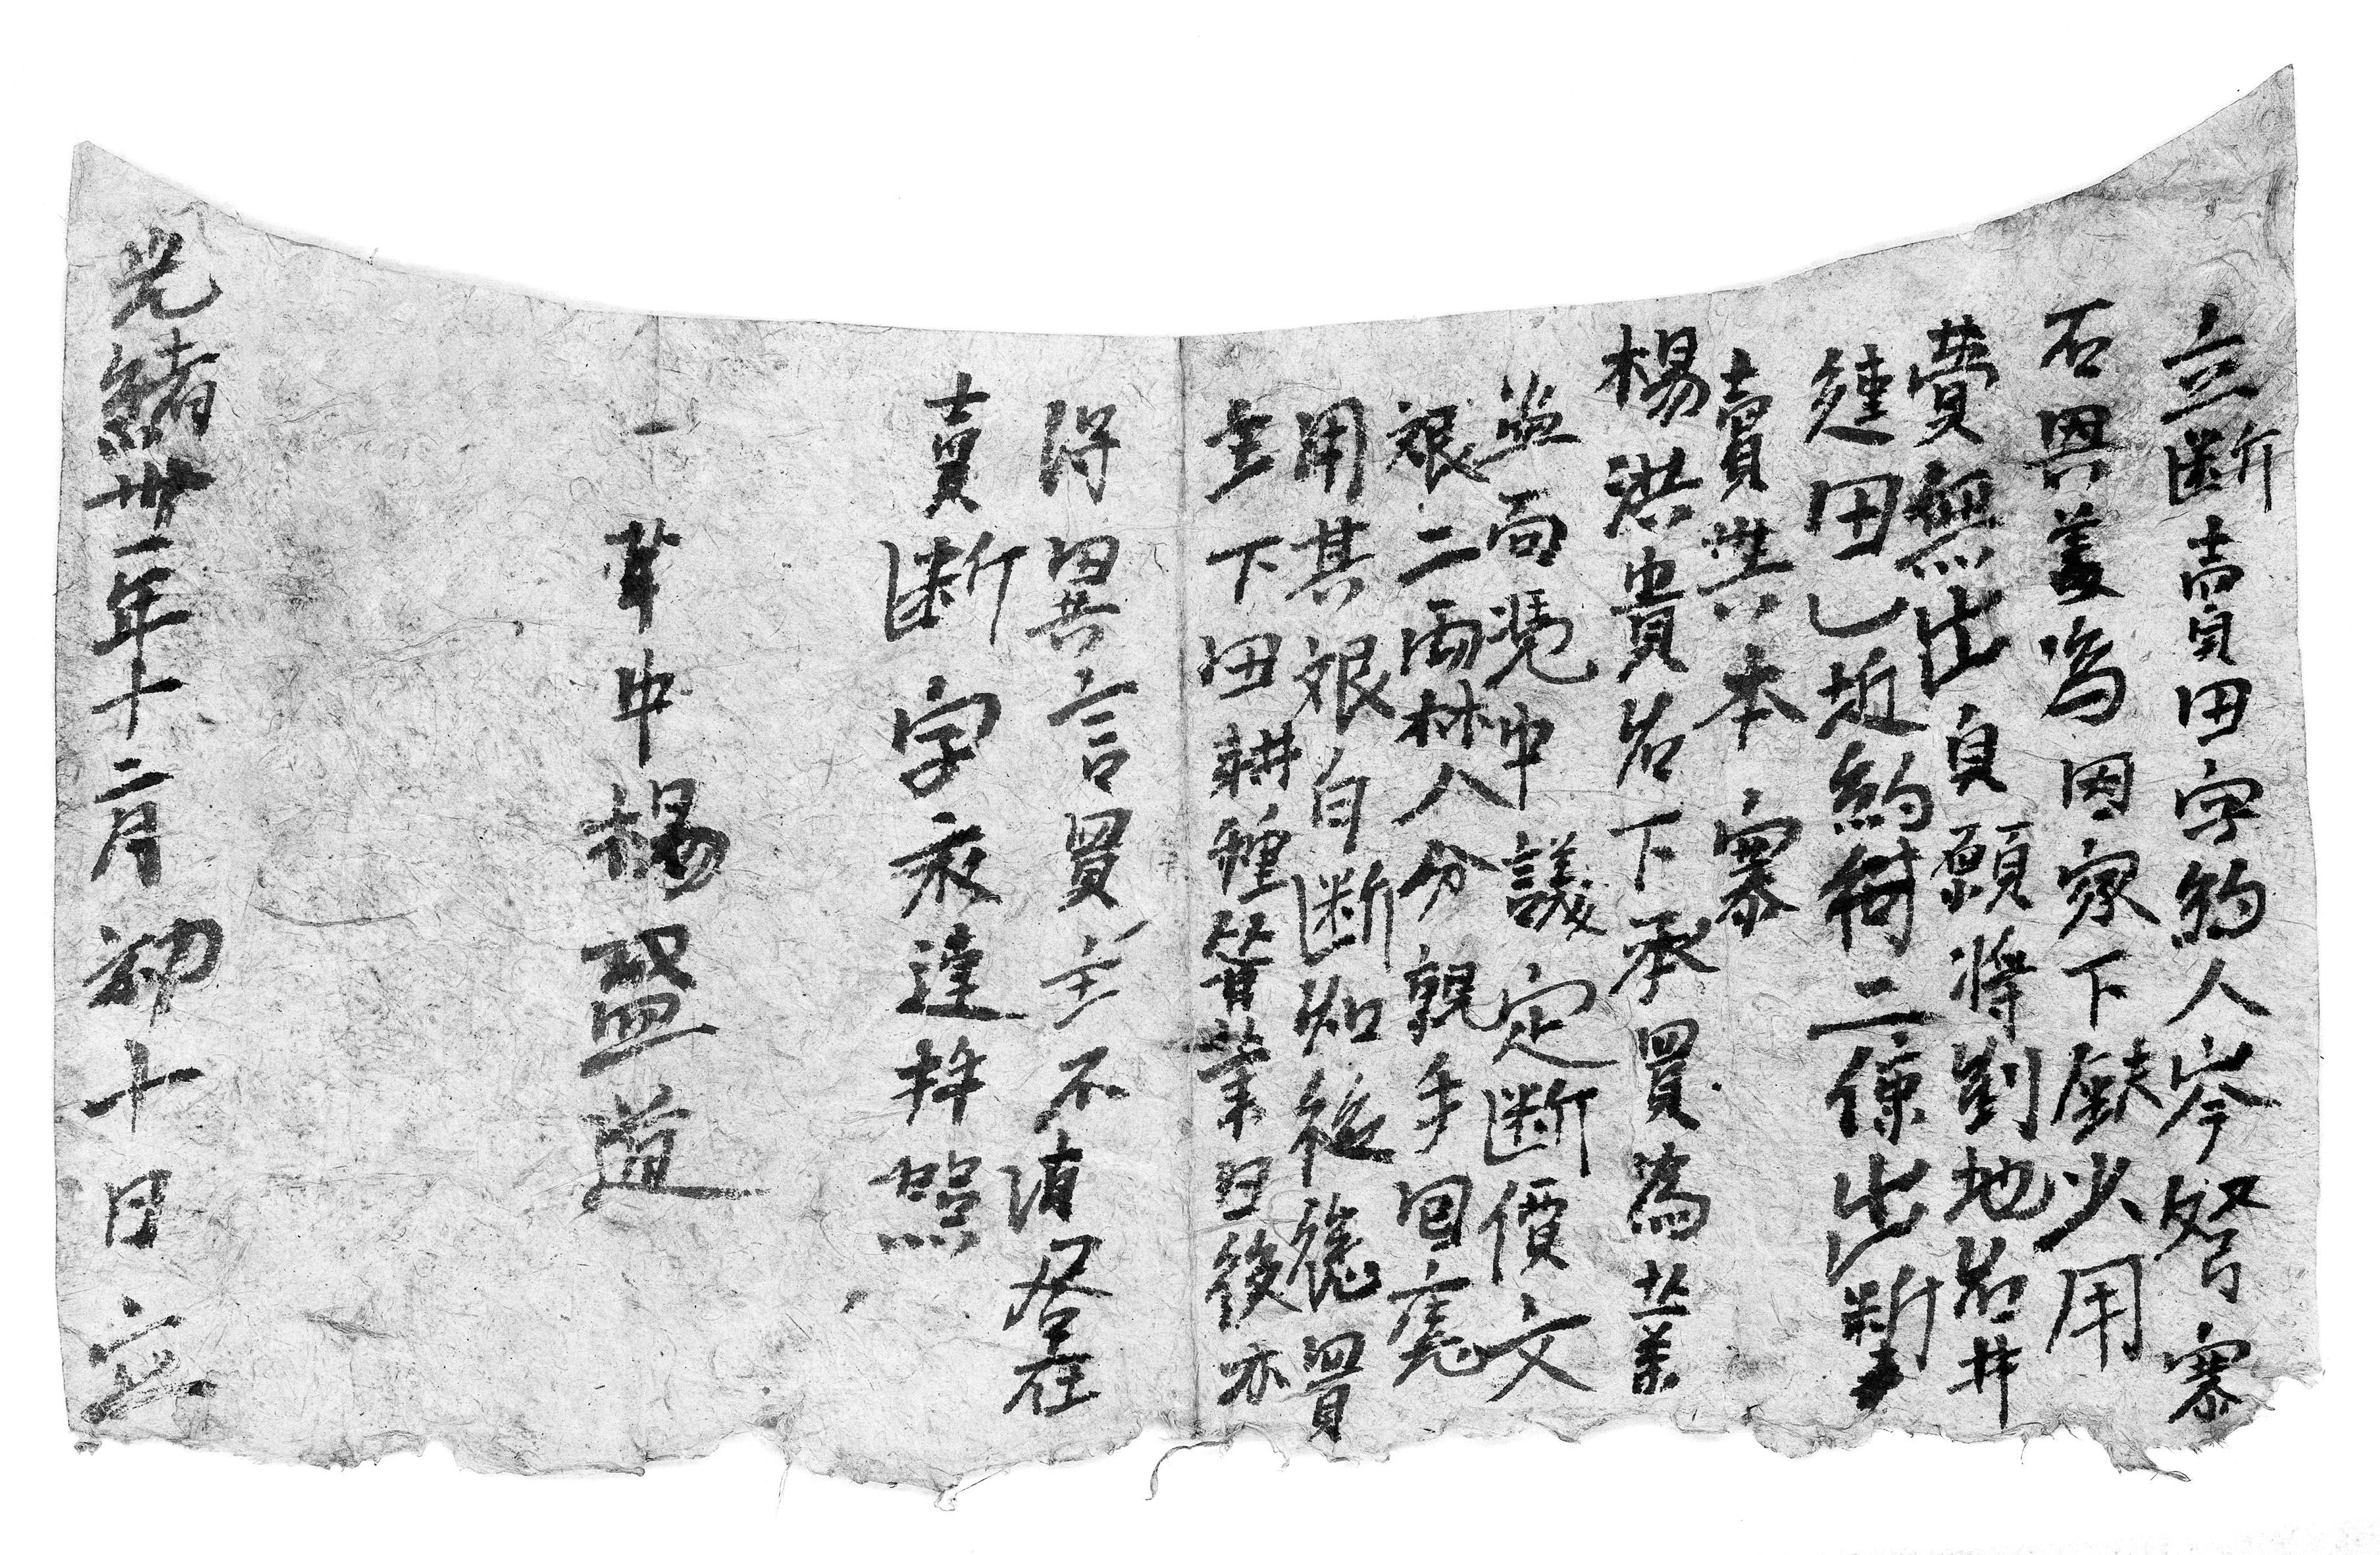 立断賣田字約人岑努寨
石興姜為因家下缺少用
費無出自願將到地名井
縫田乙坵約禾二𥺄出断
賣與本寨
楊洪貴名下承買為業
當面憑中議定断價文
艮二両捌分親手回應
用其艮自断如後憑買
主下田耕種管業日後亦
得異言買主不清居在
賣断字永遠存照
一筆中楊盛道
光緒卅一年十二月初十日立